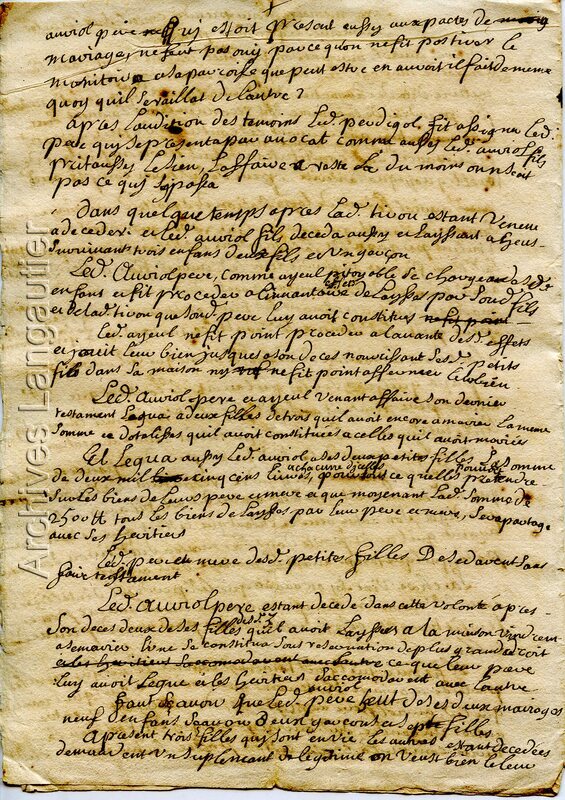 auriol pere qui estoit present aussy aux pactes de
mariage, ne fut pas ouy parce quon ne fit pas tirer le
monitoire a sa parroisse que peut estre en auroit il fait de meme
quoy quil se raillat de lautre?
apres laudition des temoins led. perdigol fit assigner led.
pere quy se presenta par avocat comme aussy led. auriol fils
prit aussy le sien, Laffaire a resté là du moins on ne scait
pas ce quy sy passa
Dans quelque temps apres lad. tivou estant venue
a deceder et led. auriol fils, deceda aussy et Layssant a
Survivant trois enfans deux filles et un garçon
Led. Auriol pere, comme ayeul pitoyable se chargea desd.
enfans et fit proceder a linvantaire des effets Layssés par Sond. fils
et de lad. tivou que Sond. pere luy avoit constitués
Led. ayeul ne fit point proceder a la vante desd. effets
et jouit leur bien jusques a son deces nourissant Sesd. petits
fils dans la maison ny ne fit point affermer led. bien
Led. Auriol pere et ayeul venant a faire Son dernier
testament Legua a deux filles de trois quil avoit encore a marier La meme
Somme et dotalisses quil avoit constituées a celles quil avoit mariées
Et Legua aussy Led. auriol a ses deux petites filles La Somme
de deux mil cinq cens Livres, a chacune d'icelles pour tout ce quelles pouroit pretendre
Sur les biens de Leurs pere et mere et que moyenant Lad. Somme de
2500 tt tous les biens de Layssés par leur pere et mere, Sera partage
avec Ses heritiers
Led. pere et mere desd. petites filles Decedarent Sans
faire testament
Led. Auriol pere estant decedé dans cette volonté apres
Son deces deux de Ses filles desd. 3 quil avoit Layssées a la maison vindrent
a se marier Lune Se constitua Sous reservation de plus grand droit
et les heritiers Saccomodarent avec Lautre ce que Leur pere
Luy avoit Legué et les heritiers Saccomodarent avec Lautre
faut Scavoir que Led. auriol pere heut de Ses deux mariages
neuf Enfans Scavoir deux garcons et Sept filles
a present trois filles quy Sont en vie les autres estant decedées
demandent un Suplement de legitime on veust bien le leur
Archives Langautier